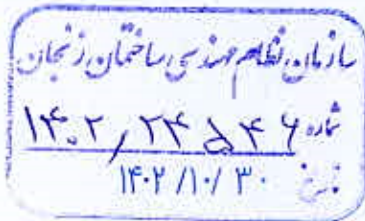 سازمان نظام مهندسی ساختمان زنجان
شماره ۱۴۰۲,۲۴۵۴۶
تاریخ ۱۴۰۲/۱۰/۳۰